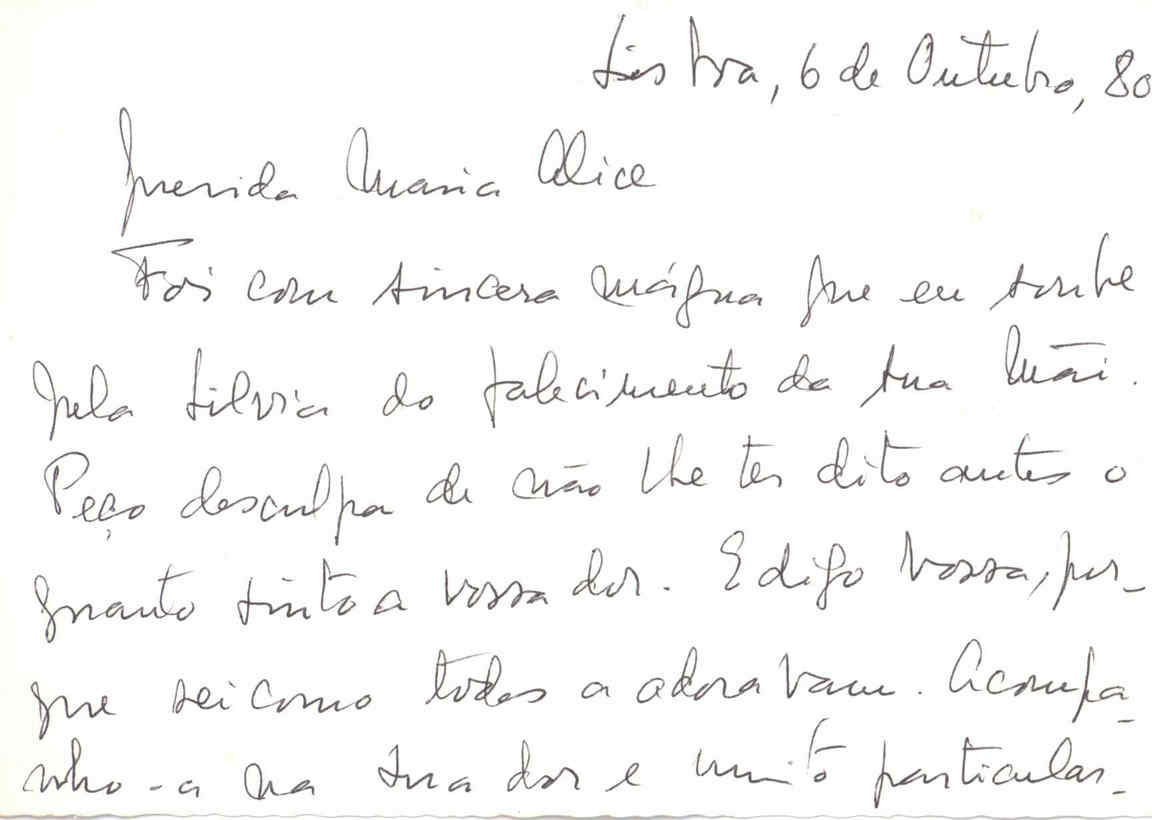 Lisboa, 6 de Outubro, 80
Querida Maria Alice
Foi com sincera mágua que eu soube
pela Silvia do falecimento da sua Mãi.
Peço desculpa de não lhe ter dito antes o
quanto sinto a vossa dor. E digo vossa, por-
que sei como todos a adoravam. Acompa-
nho-a na sua dor e muito particular-